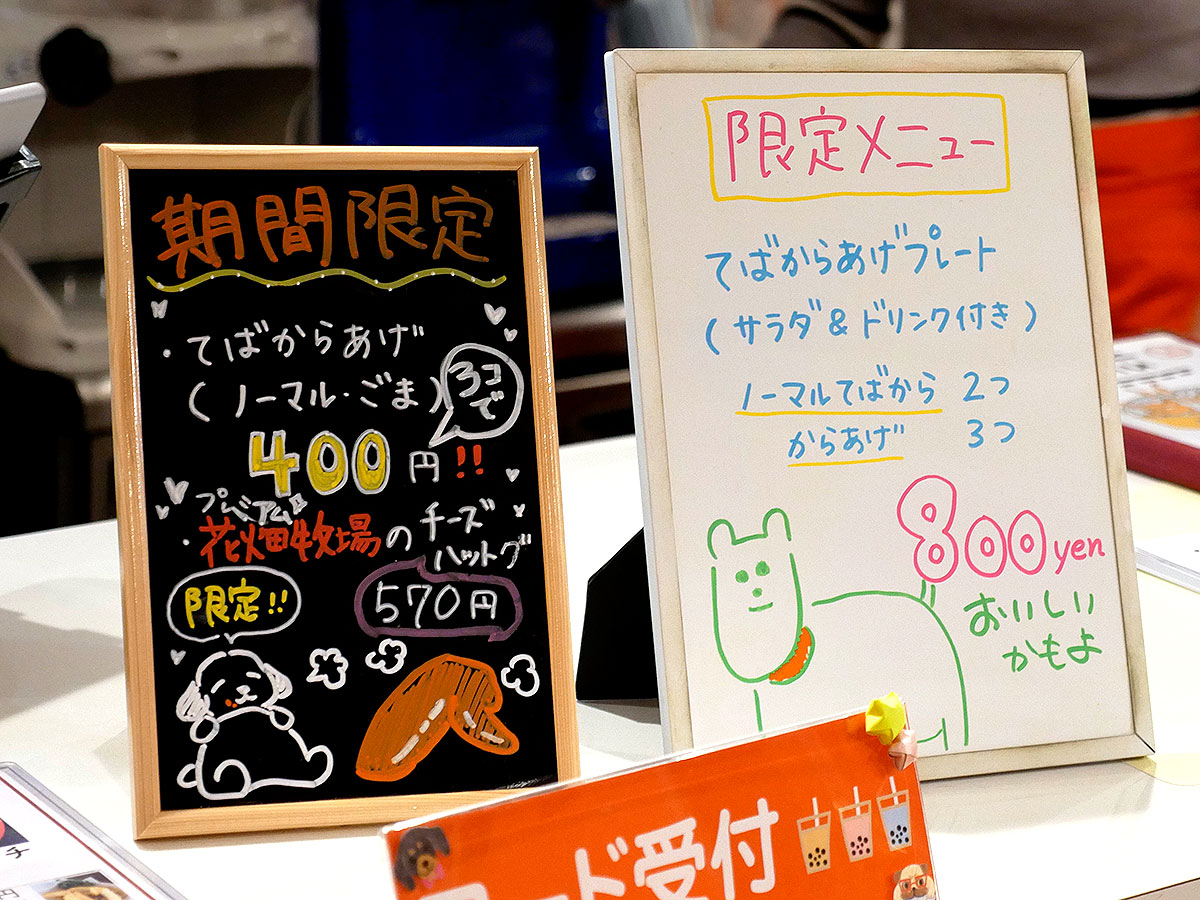 期間限定
・てばからあげ
(ノーマル・ごま)
3コで
400円!!
プレミアム
・花畑牧場のチーズ
ハットグ
限定!!
570円
限定メニュー
てばからあげプレート
(サラダ&ドリンク付き)
ノーマルてばから 2つ
からあげ 3つ
800yen
おいしい
かもよ
ード受付
チ
円